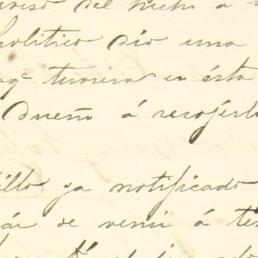 del hecho a
politico dio una
tuviera en ésta
Dueño á recojerlo
illo ya notificado
de venir á